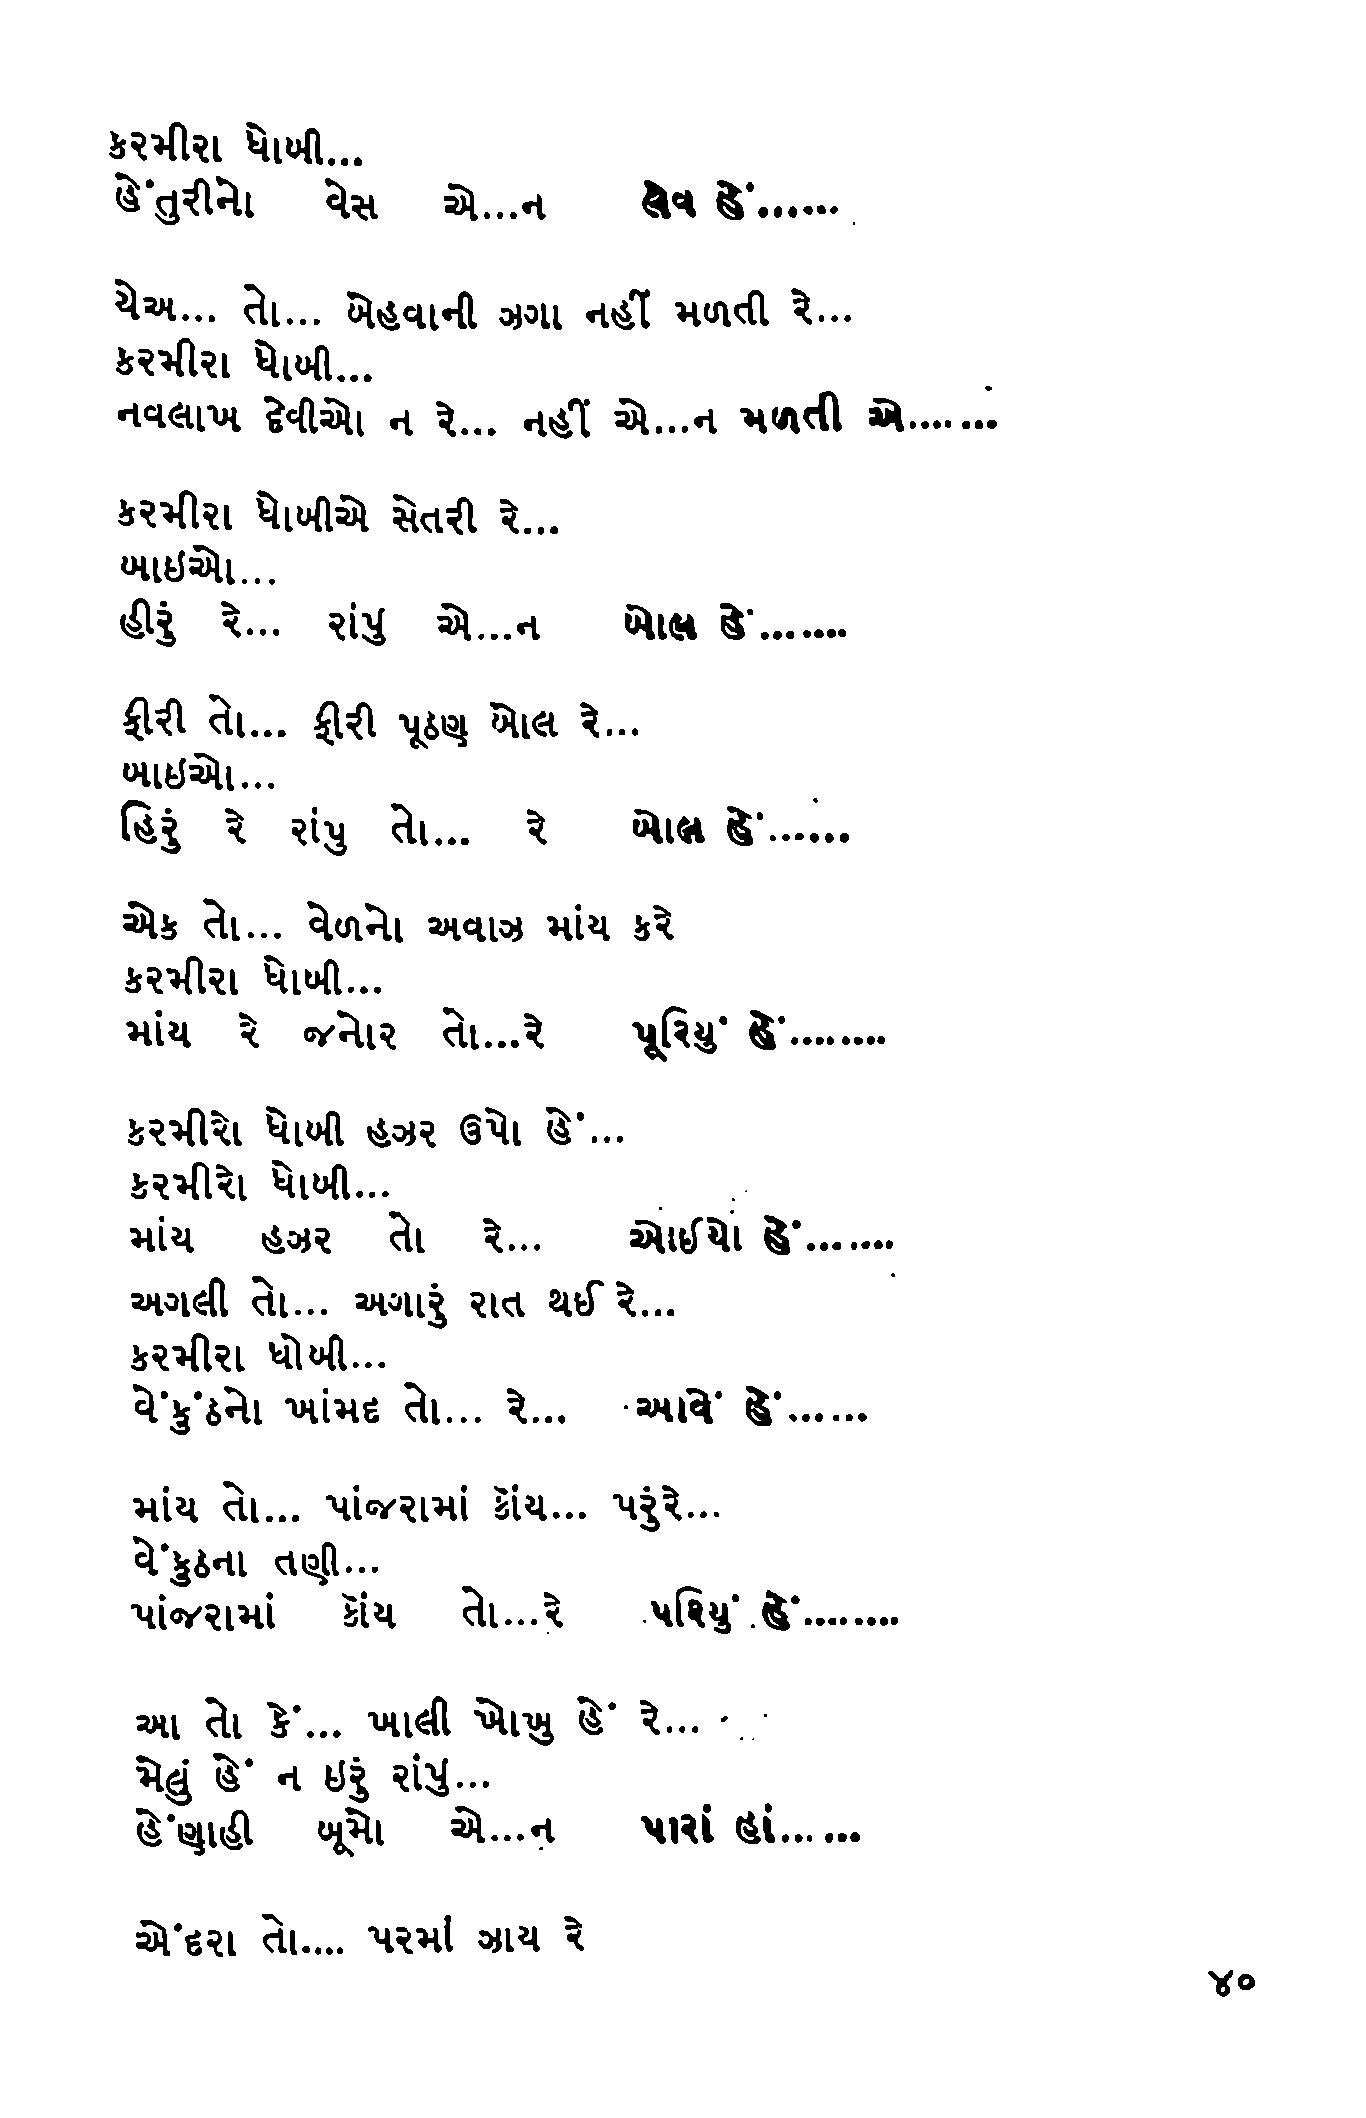 કરમીરા ધોબી...
હેંતુરીનો વેસ એ...ન લેવ હેં......
યેઅ... તો... બેહવાની ઝગા નહીં મળતી રે...
કરમીરા ધોબી...
નવલાખ દેવીઓ ન રે... નહીં એ...ન મળતી એ.......
કરમીરા ધોબીએ સેતરી રે...
બાઇઓ...
હીરું રે... રાંપુ એ...ન બોલ હેં.......
ફીરી તો... ફીરી પૂઠણ બોલ રે...
બાઇઓ...
હિરું રે રાંપુ તો... રે બોલ હેં......
એક તો... વેળનો અવાઝ માંય કરે
કરમીરા ધોબી...
માંય રે જનોર તો...રે પૂરિયું હેં........
કરમીરો ધોબી હઝર ઉપો હેં...
કરમીરો ધોબી...
માંય હઝર તો રે... ઓઈયો હેં.......
અગલી તો... અગારું રાત થઈ રે...
કરમીરા ધોબી...
વેંકુંઠનો ખાંમદ તો... રે... આવેં હેં......
માંય તો... પાંજરામાં કૉંય... પરુંરે...
વેંકુઠના તણી...
પાંજરામાં કૉંય તો...રે પરિયું હેં........
આ તો કેં... ખાલી ખોખુ હેં રે...
મેલું હેં ન ઇરું રાંપુ...
હેંણાહી બૂમો એ...ન પારાં હાં......
એંદરા તો.... પરમાં ઝાય રે
૪૦